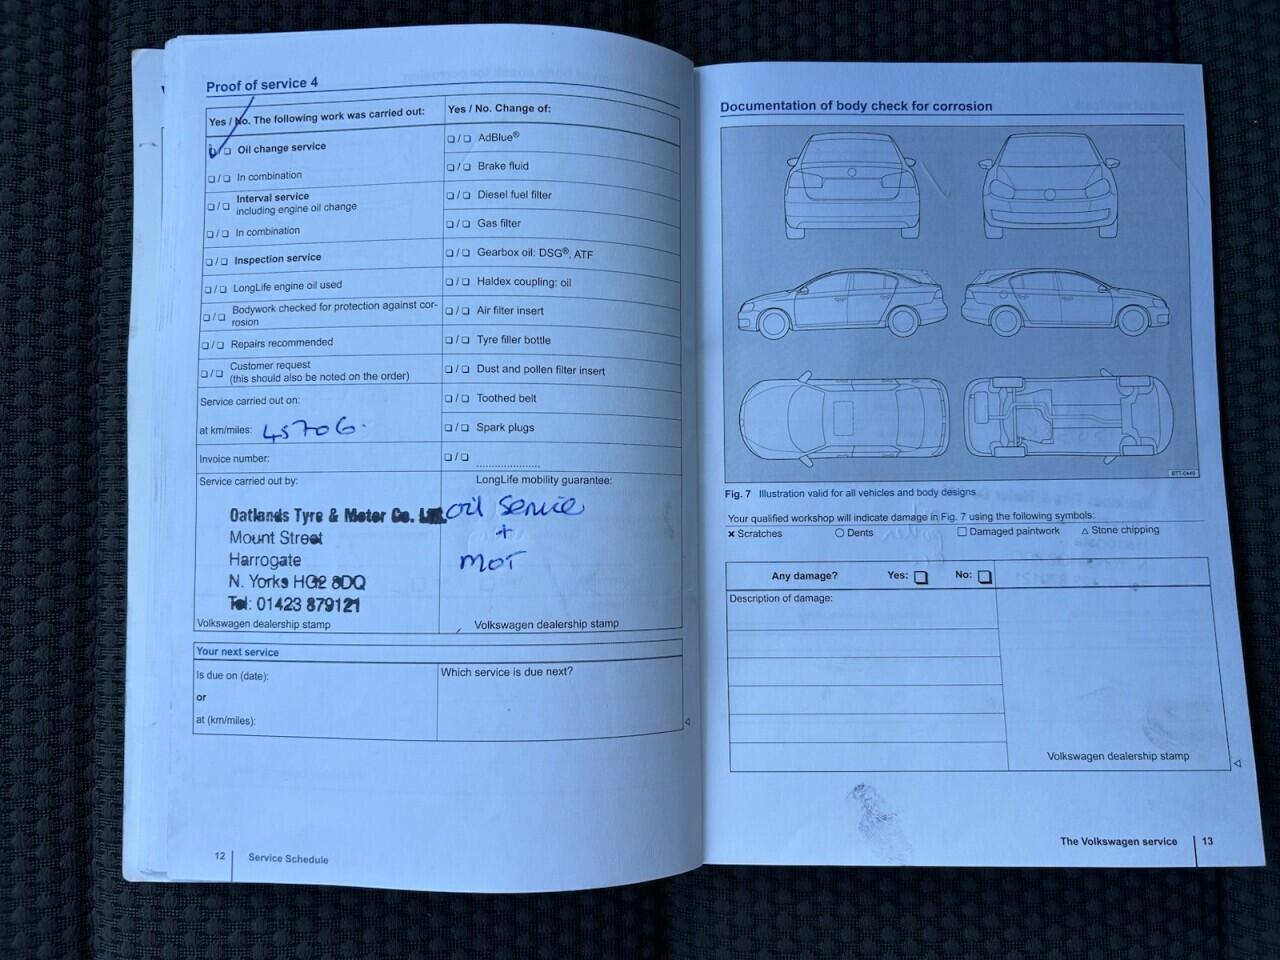 Proof of service 4
Yes / No. The following work was carried out:
❏ / ❏ Oil change service
❏ / ❏ In combination
❏ / ❏ Interval service
including engine oil change
❏ / ❏ In combination
❏ / ❏ Inspection service
❏ / ❏ LongLife engine oil used
❏ / ❏ Bodywork checked for protection against cor-
rosion
❏ / ❏ Repairs recommended
❏ / ❏ Customer request
(this should also be noted on the order)
Service carried out on:
at km/miles: 45706.
Invoice number:
Service carried out by:
Oatlands Tyre & Motor Co. Ltd.
Mount Street
Harrogate
N. Yorks HG2 8DQ
Tel: 01423 879121
Volkswagen dealership stamp
Yes / No. Change of:
❏ / ❏ AdBlue®
❏ / ❏ Brake fluid
❏ / ❏ Diesel fuel filter
❏ / ❏ Gas filter
❏ / ❏ Gearbox oil: DSG®, ATF
❏ / ❏ Haldex coupling: oil
❏ / ❏ Air filter insert
❏ / ❏ Tyre filler bottle
❏ / ❏ Dust and pollen filter insert
❏ / ❏ Toothed belt
❏ / ❏ Spark plugs
❏ / ❏ ....................
LongLife mobility guarantee:
Oil Service
+
MOT
Volkswagen dealership stamp
Your next service
Is due on (date):
or
at (km/miles):
Which service is due next?
12 Service Schedule
Documentation of body check for corrosion
BTT-0449
Fig. 7 Illustration valid for all vehicles and body designs
Your qualified workshop will indicate damage in Fig. 7 using the following symbols:
✗ Scratches ○ Dents □ Damaged paintwork △ Stone chipping
Any damage? Yes: ❏ No: ❏
Description of damage:
Volkswagen dealership stamp
The Volkswagen service 13